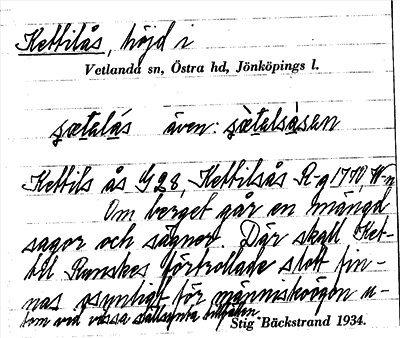 Kettilås, höjd i
Vetlanda sn, Östra hd, Jönköpings l.
även:
Kettils ås G 28, Kettilsås R-g 1770, W-n
Om berget går en mängd
sagor och sägner. Där skall Ket-
til Runskes förtrollade slott fin-
nas osynligt för människoögon u-
tom vid vissa sällsynta tillfällen.
Stig Bäckstrand 1934.